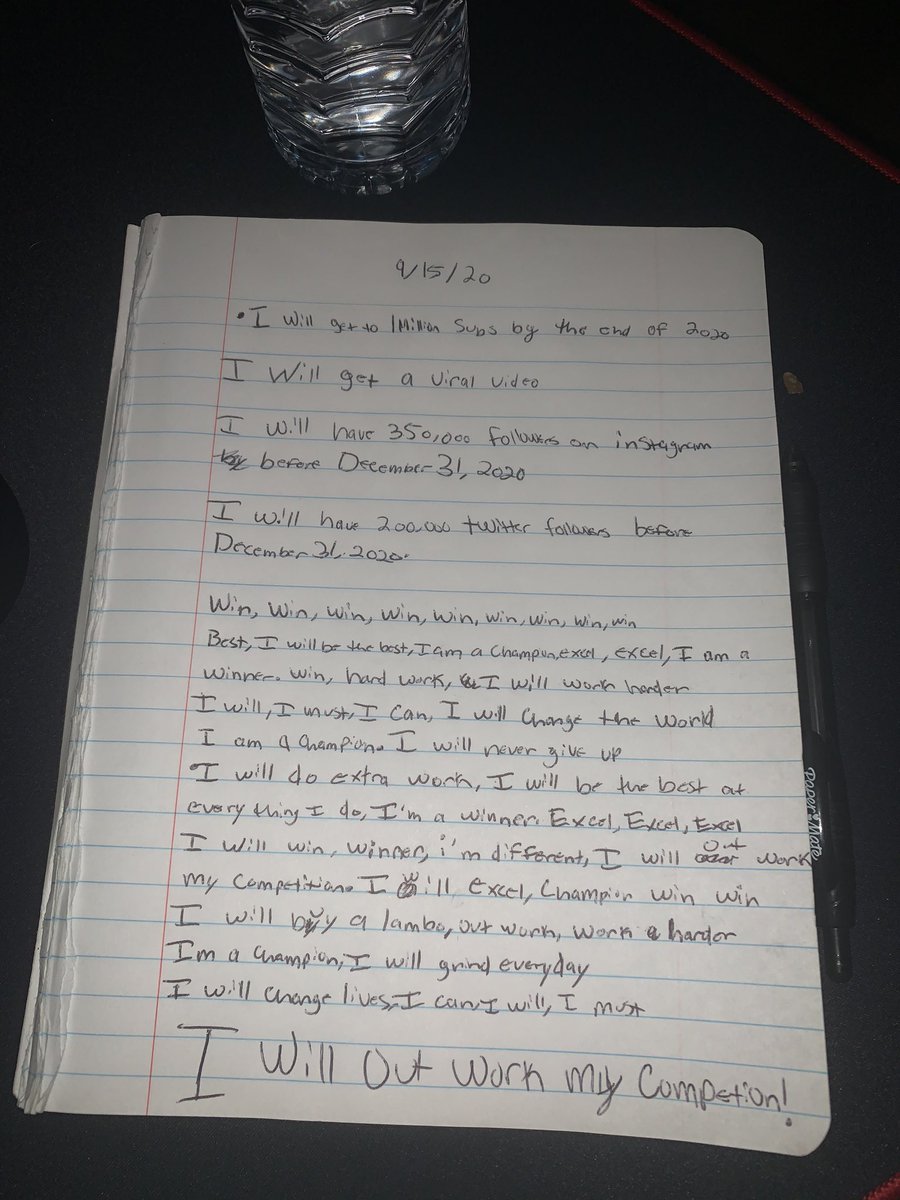 9/15/20
• I Will get to 1 Million Subs by the end of 2020
I Will get a viral video
I will have 350,000 followers on instagram
before December 31, 2020
I will have 200,000 twitter followers before
December 31, 2020.
Win, Win, win, win, win, win, win, win, win
Best, I will be the best, I am a Champion, excel, excel, I am a
winner. win, hard work, I will work harder
I will, I must, I can, I will change the world
I am a champion. I will never give up
I will do extra work, I will be the best at
everything I do, I'm a winner. Excel, Excel, Excel
I will win, winner, i'm different, I will out work
my competition. I will excel, Champion win win
I will buy a lambo, out work, work harder
I'm a champion, I will grind everyday
I will change lives, I can, I will, I must
I Will Out Work my Competion!
Paper Mate